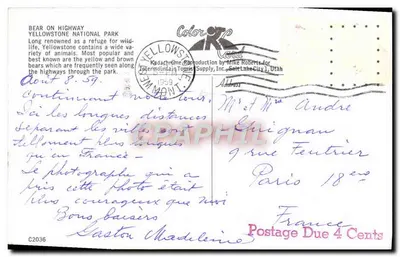 BEAR ON HIGHWAY
YELLOWSTONE NATIONAL PARK
Long renowned as a refuge for wild-
life, Yellowstone contains a wide va-
riety of animals. Most popular and
best known are the yellow and brown
bears which are frequently seen along
the highways through the park.
Août 8-59.
continuent notre
Ici les longues distances
séparant les villes
tellement plus longues
qu'en France
Le photographe qui a
pris cette photo était
plus courageux que moi
Bons baisers
Gaston Madeleine
C2036
Color
Card
Kodachrome Reproduction by Mike Roberts for
Intermountain Tourist Supply, Inc., Salt Lake City 1, Utah
YELLOWSTONE
1959
Mr et Mme André
9 rue
Paris 18ème
France
Postage Due 4 Cents